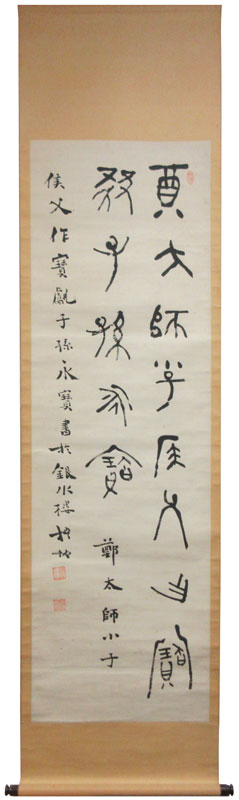 奠大師小子侯父乍寶
獻子孫永寶
鄭太師小子
侯父作寶甗子孫永寶書於銀水樓